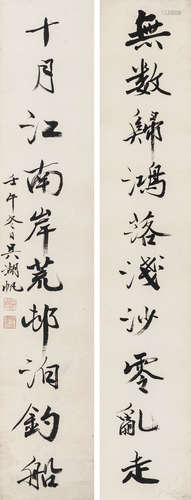 無数歸鴻落淺沙零亂走
十月江南岸荒邨泊釣船
壬午冬日吳湖帆